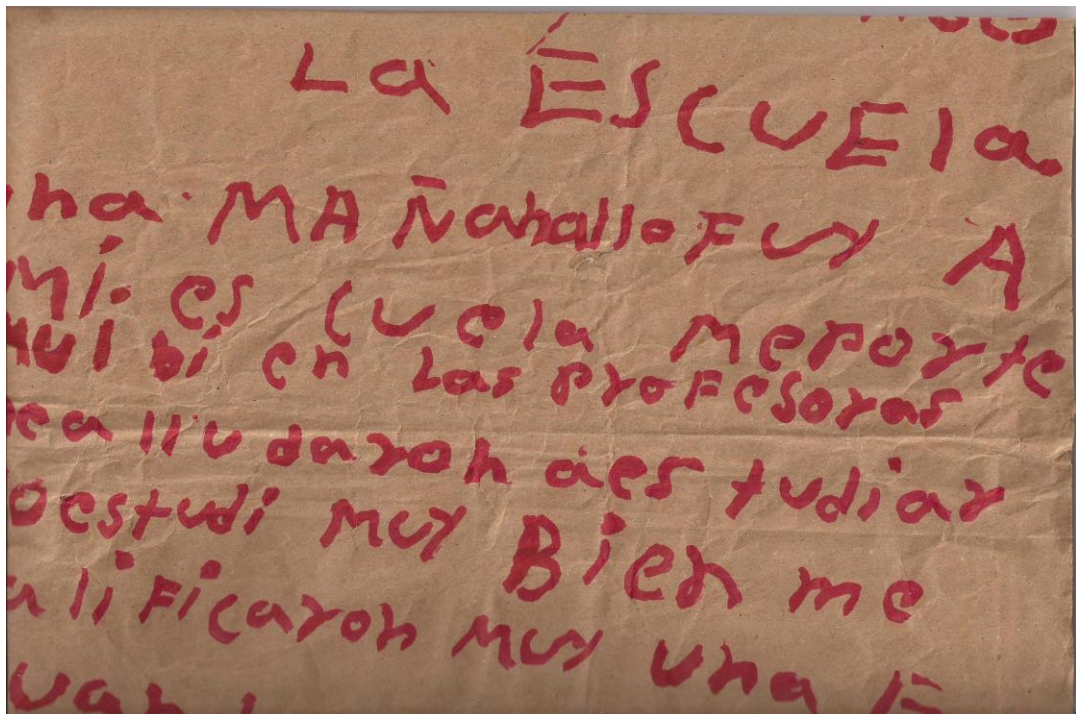 La ÉSCUEla
una MAÑanalloFuy A
Mí. es cuela meporte
mui bi en Las profesoras
mea llu daron aes tudiar
estudi muy Bien me
alificaron muy una E